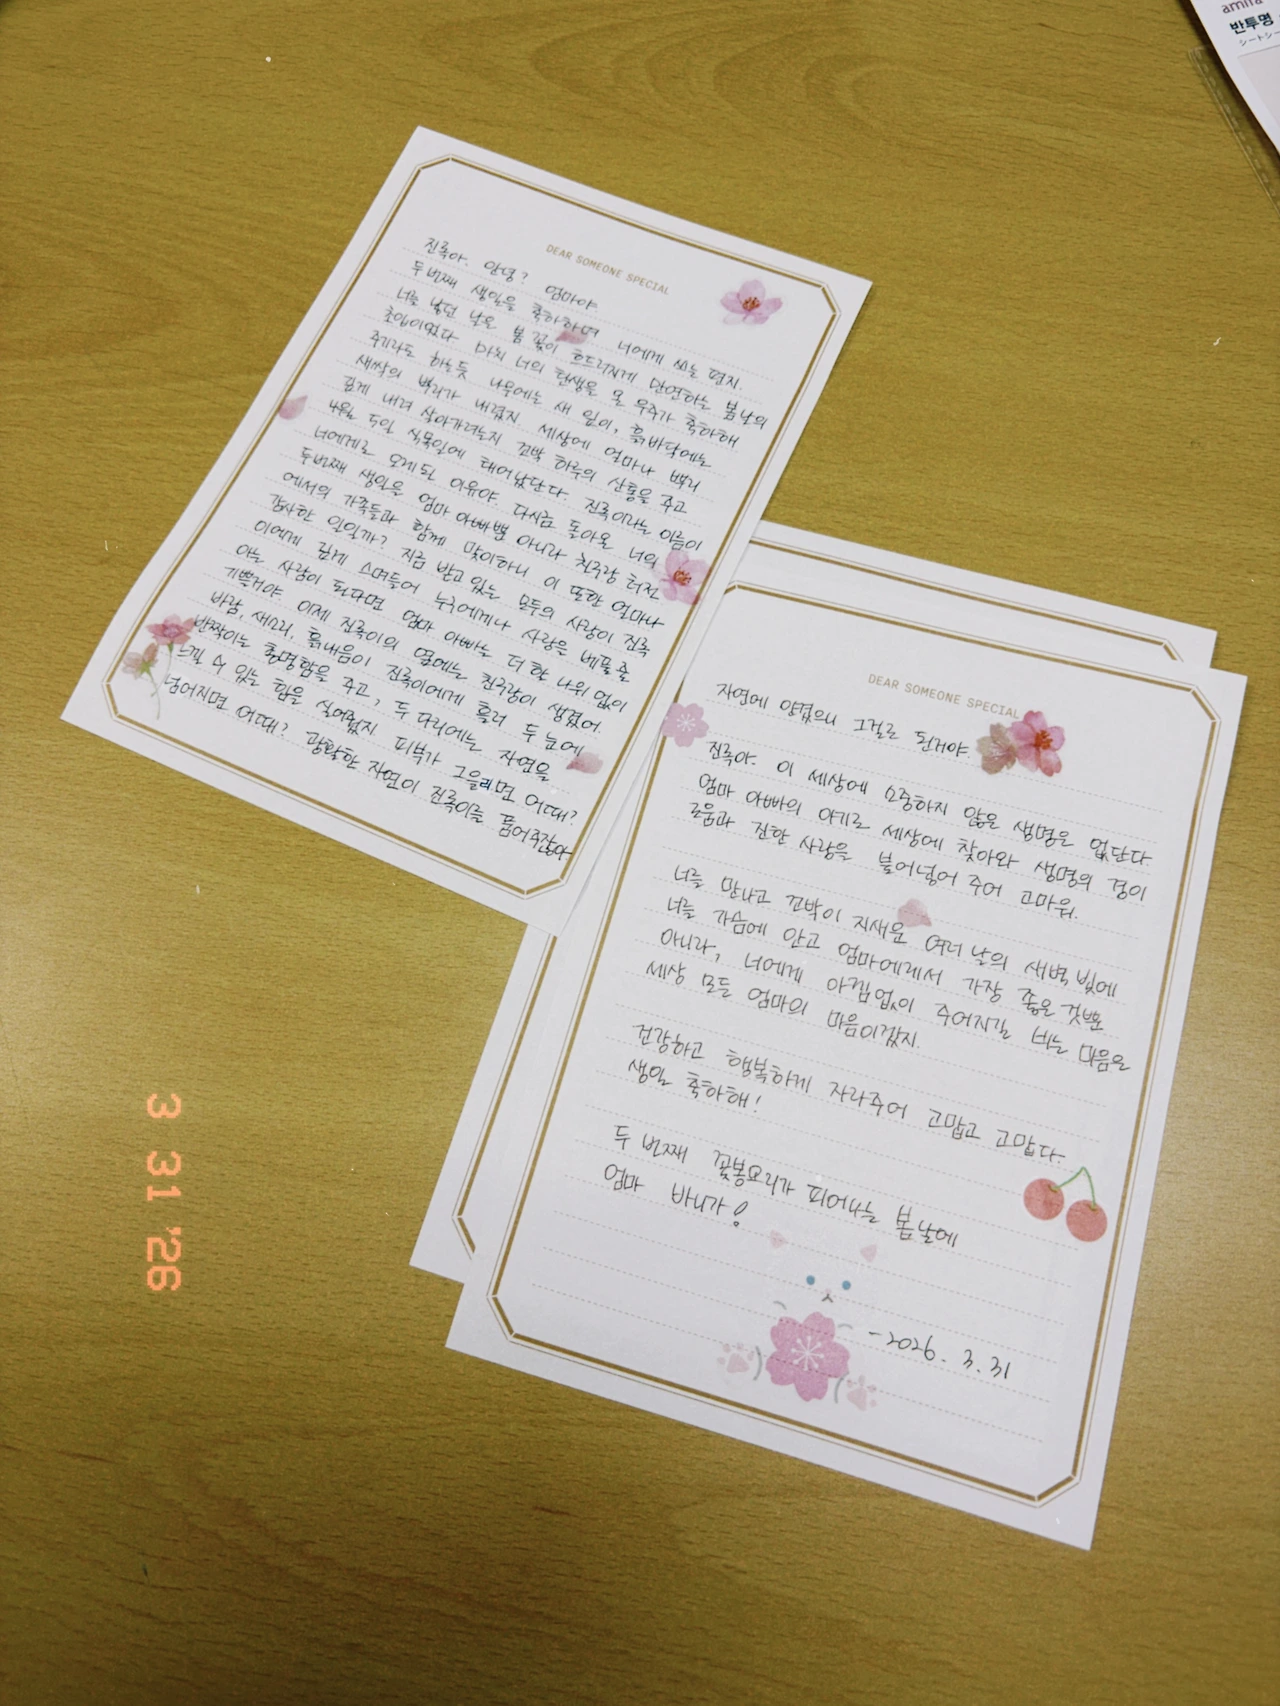 amita
반투명
シートシー
DEAR SOMEONE SPECIAL
진록아. 안녕? 엄마야
두번째 생일을 축하하며 너에게 쓰는 편지.
너를 낳던 날은 봄 꽃이 흐드러지게 만연하는 봄날의
초입이었다 마치 너의 탄생을 온 우주가 축하해
주기라도 하는듯 나무에는 새 잎이, 흙바닥에는
새싹의 뿌리가 내렸지 세상에 얼마나 뿌리
깊게 내려 살아가려는지 꼬박 하루의 산통을 주고
4월 5일 식목일에 태어났단다. 진록이라는 이름이
너에게로 오게된 이유야. 다시금 돌아온 너의
두번째 생일을 엄마 아빠뿐 아니라 친구랑 터전
에서의 가족들과 함께 맞이하니 이 또한 얼마나
감사한 일일까? 지금 받고 있는 모두의 사랑이 진록
이에게 깊게 스며들어 누구에게나 사랑을 베풀 줄
아는 사람이 된다면 엄마 아빠는 더할 나위 없이
기쁠거야 이제 진록이의 옆에는 친구랑이 생겼어.
바람, 새소리, 흙내음이 진록이에게 흘러 두 눈에
반짝이는 총명함을 주고, 두 다리에는 자연을
느낄 수 있는 힘을 실어줬지 피부가 그을리면 어때?
넘어지면 어때? 광활한 자연이 진록이를 품어주잖아
DEAR SOMEONE SPECIAL
자연에 안겼으니 그걸로 된거야.
진록아. 이 세상에 소중하지 않은 생명은 없단다
엄마 아빠의 아기로 세상에 찾아와 생명의 경이
로움과 진한 사랑을 불어넣어 주어 고마워.
너를 만나고 꼬박이 지새운 여러 날의 새벽 빛에
너를 가슴에 안고 엄마에게서 가장 좋은 것뿐
아니라, 너에게 아낌없이 주어지길 비는 마음은
세상 모든 엄마의 마음이겠지.
건강하고 행복하게 자라주어 고맙고 고맙다.
생일 축하해!
두 번째 꽃봉오리가 피어나는 봄날에
엄마 바니가!
-2026. 3. 31
3 31 '26